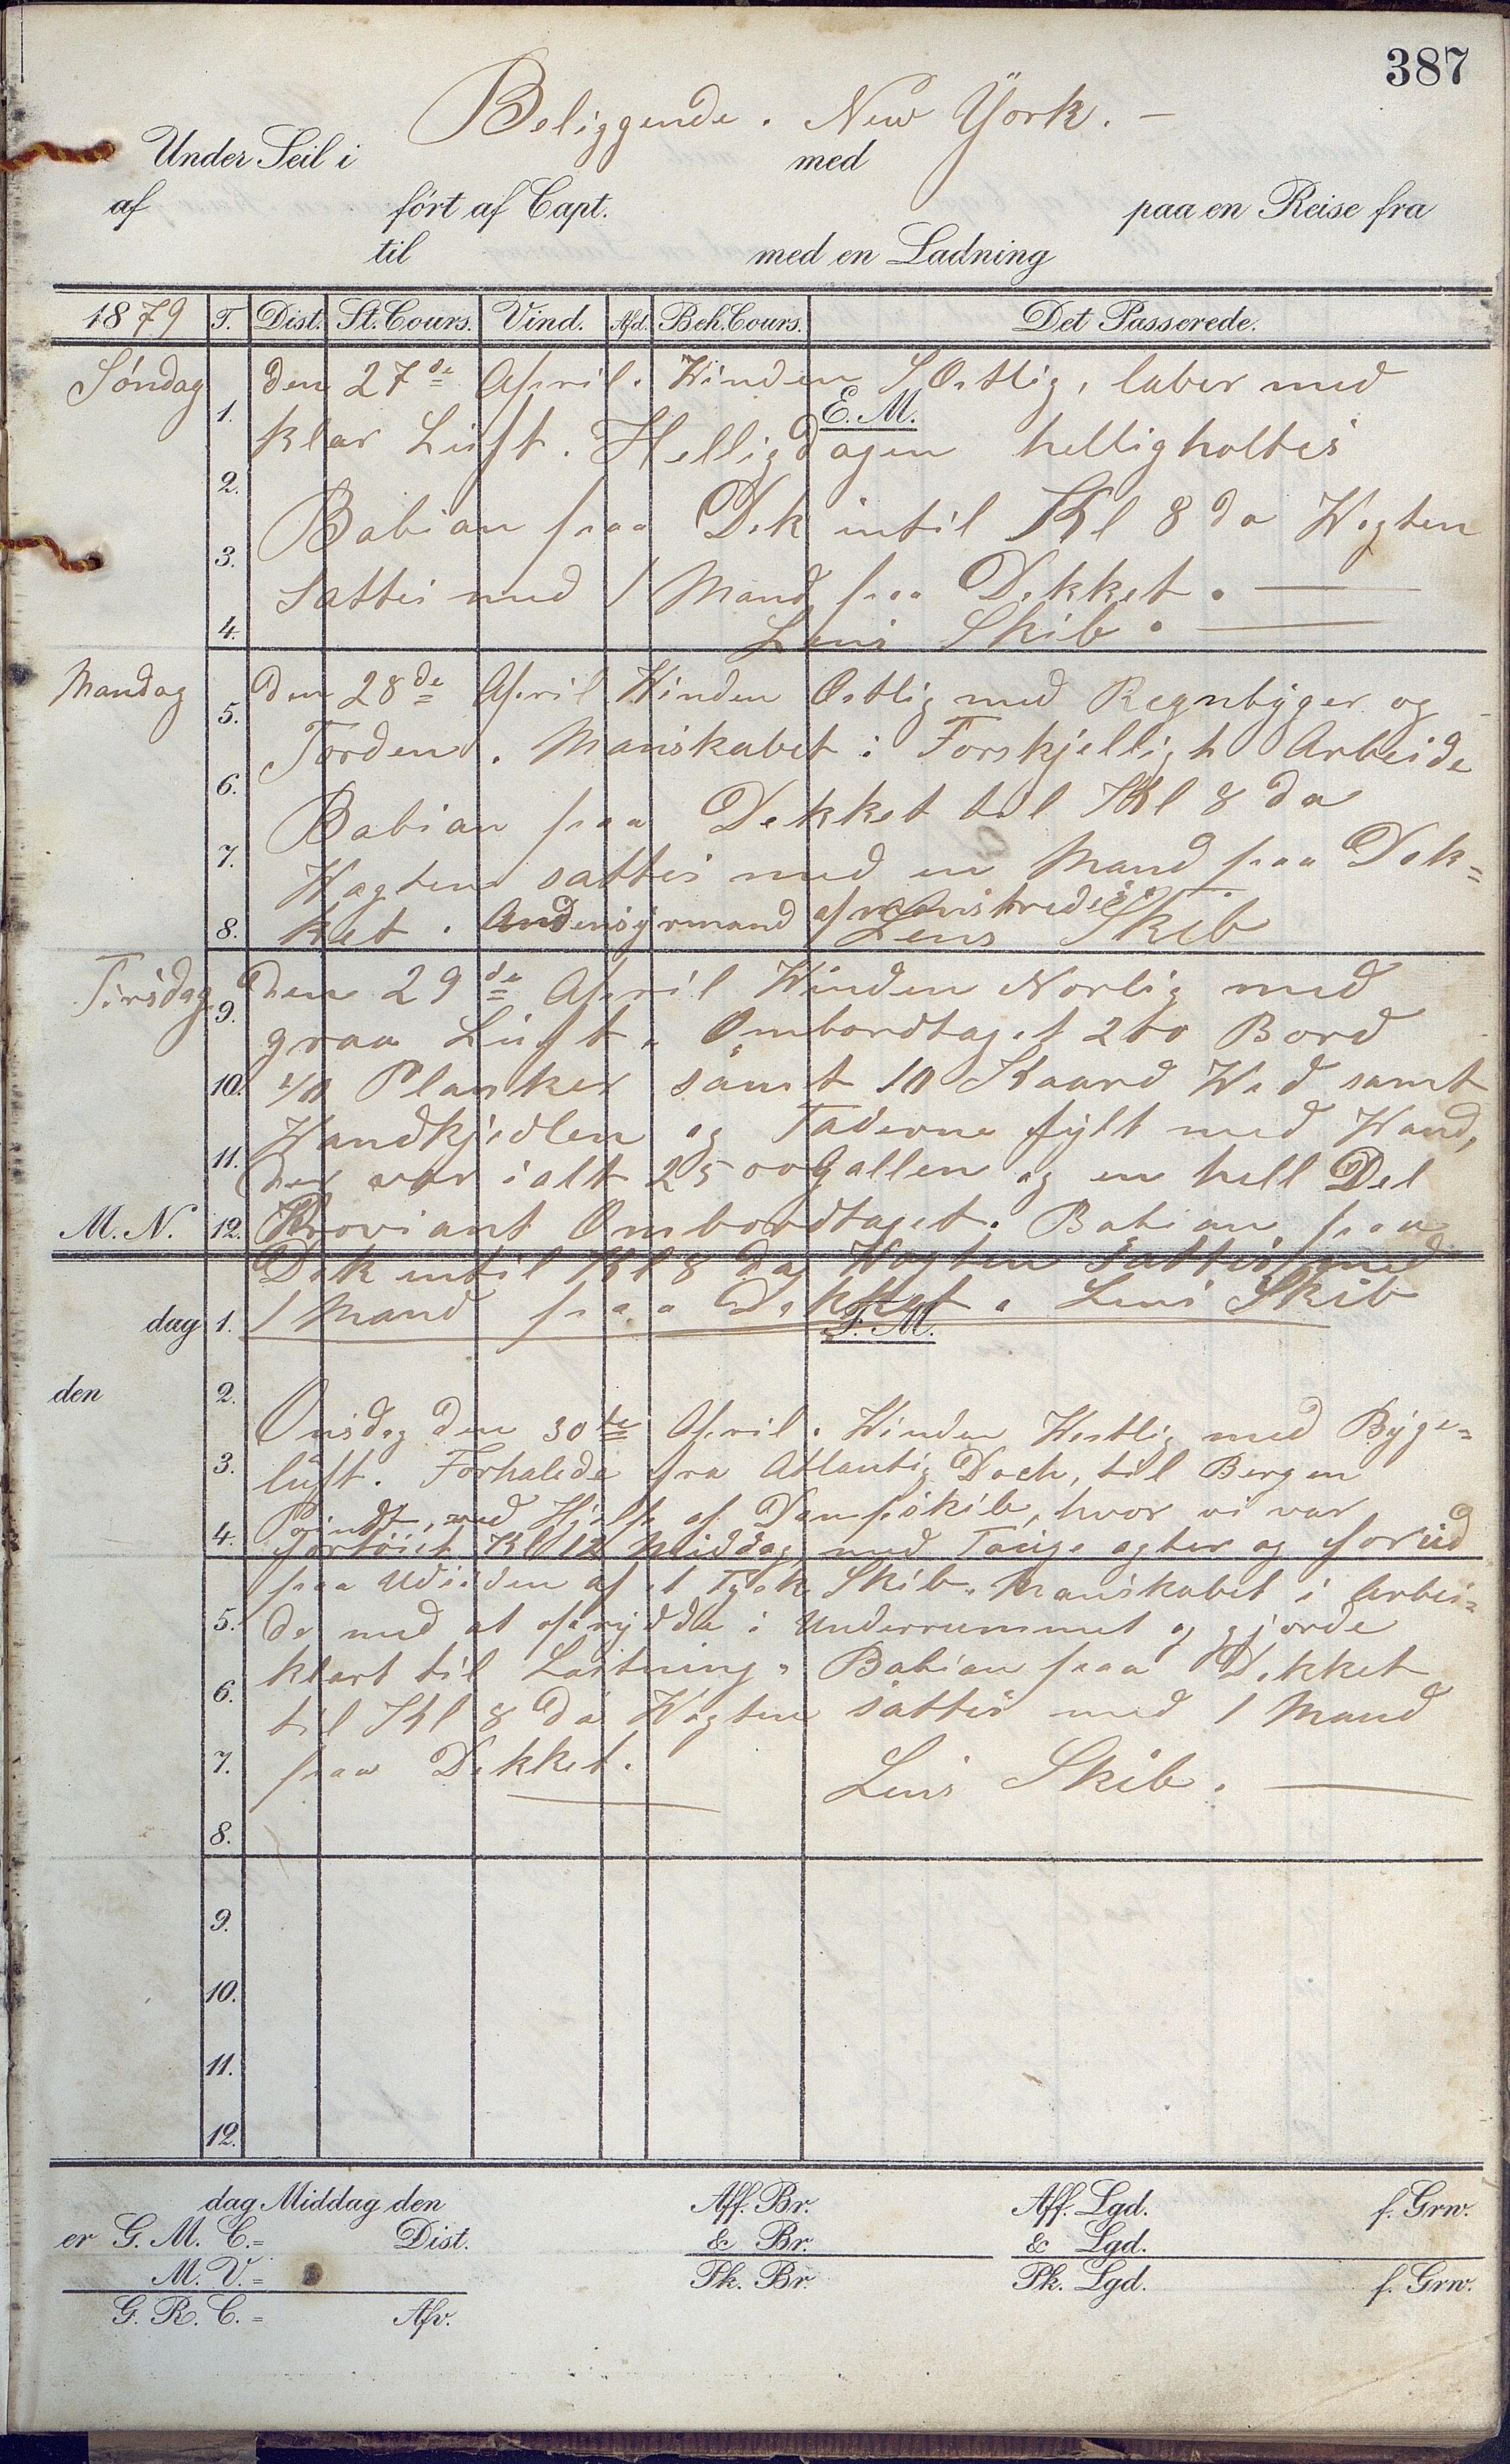 387
Beliggende. New York. —
Under Seil i med
af fórt af Capt. paa en Reise fra
til med en Ladning
1879 T. Dist. St. Cours. Vind. Afd. Beh. Cours. Det Passerede.
Søndag den 27de April. Winden S Ostlig, laber med
E. M.
1. klar Luft. Helligdagen helligholtes
2. Babian paa Dek intil Kl 8 da Wagten
3. sattes med 1 Mand paa Dekket. —
4. Lens Skib. —
Mandag den 28de April Winden Ostlig med Regnbyger og
5. Torden. Manskabet i Forskjelligt Arbeide
6. Babian paa Dekket til Kl 8 da
7. Wagten sattes med en Mand paa Dek=
8. ket. Andenstyrmand afmønstredes. Lens Skib
Tirsdag den 29de April Winden Norlig med
9. graa Luft. Ombordtaget 200 Bord
10. Planker samt 10 Kaard Wed samt
Wandkjedlen og Faderne fylt med Wand,
11. der var ialt 2500 Gallen og en hell Del
M. N. 12. Proviant Ombordtaget. Babian paa
Dek intil Kl 8 da Wagten sattes med
dag 1. 1 Mand paa Dekket. Lens Skib
F. M.
den 2.
Onsdag den 30te April. Winden Westlig med Byge=
3. luft. Forhalede fra Atlantig Dock, til Bergen
4. med Hjelp af Dampskib, hvor vi var
fortöiet Kl 12 Middag med Touge agter og forud
paa Udsiden af et Tysk Skib. Manskabet i Arbei=
5. de med at oprydde i Underrummet og gjorde
klart til Lastning. Babian paa Dekket
6. til Kl 8 da Wagten sattes med 1 Mand
7. paa Dekket. Lens Skib. —
8.
9.
10.
11.
12.
dag Middag den Aff. Br. Aff. Lgd. f. Grw.
er G. M. C.= Dist. & Br. & Lgd.
M. V.= Pk. Br. Pk. Lgd. f. Grw.
G. R. C.= Afv.